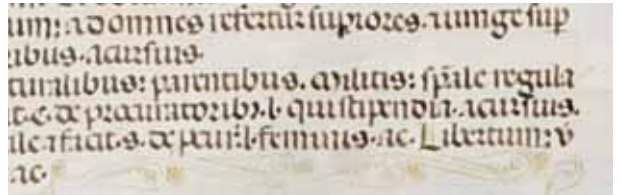 um: ad omnes refertur supiores. iunge sup
ribus. acursius.
turalibus: parentibus. spāle regula
t. C. de procuratorib;. l. qui stipendia. acursius.
ale facit. s. de l. feminis. ac. Libertum: v
. ac.